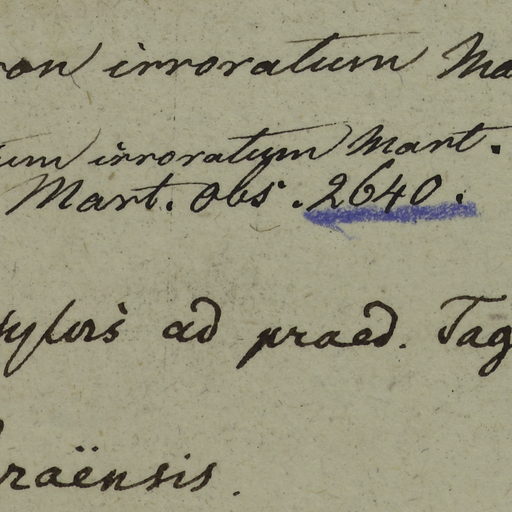 ron irroratum Ma
um irroratum Mart.
Mart. Obs. 2640.
sylvis ad praed. Tag
raënsis.